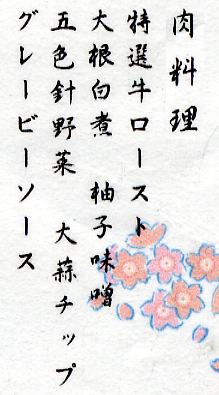 肉料理
特選牛ロースト
大根白煮　柚子味噌
五色針野菜　大蒜チップ
グレービーソース